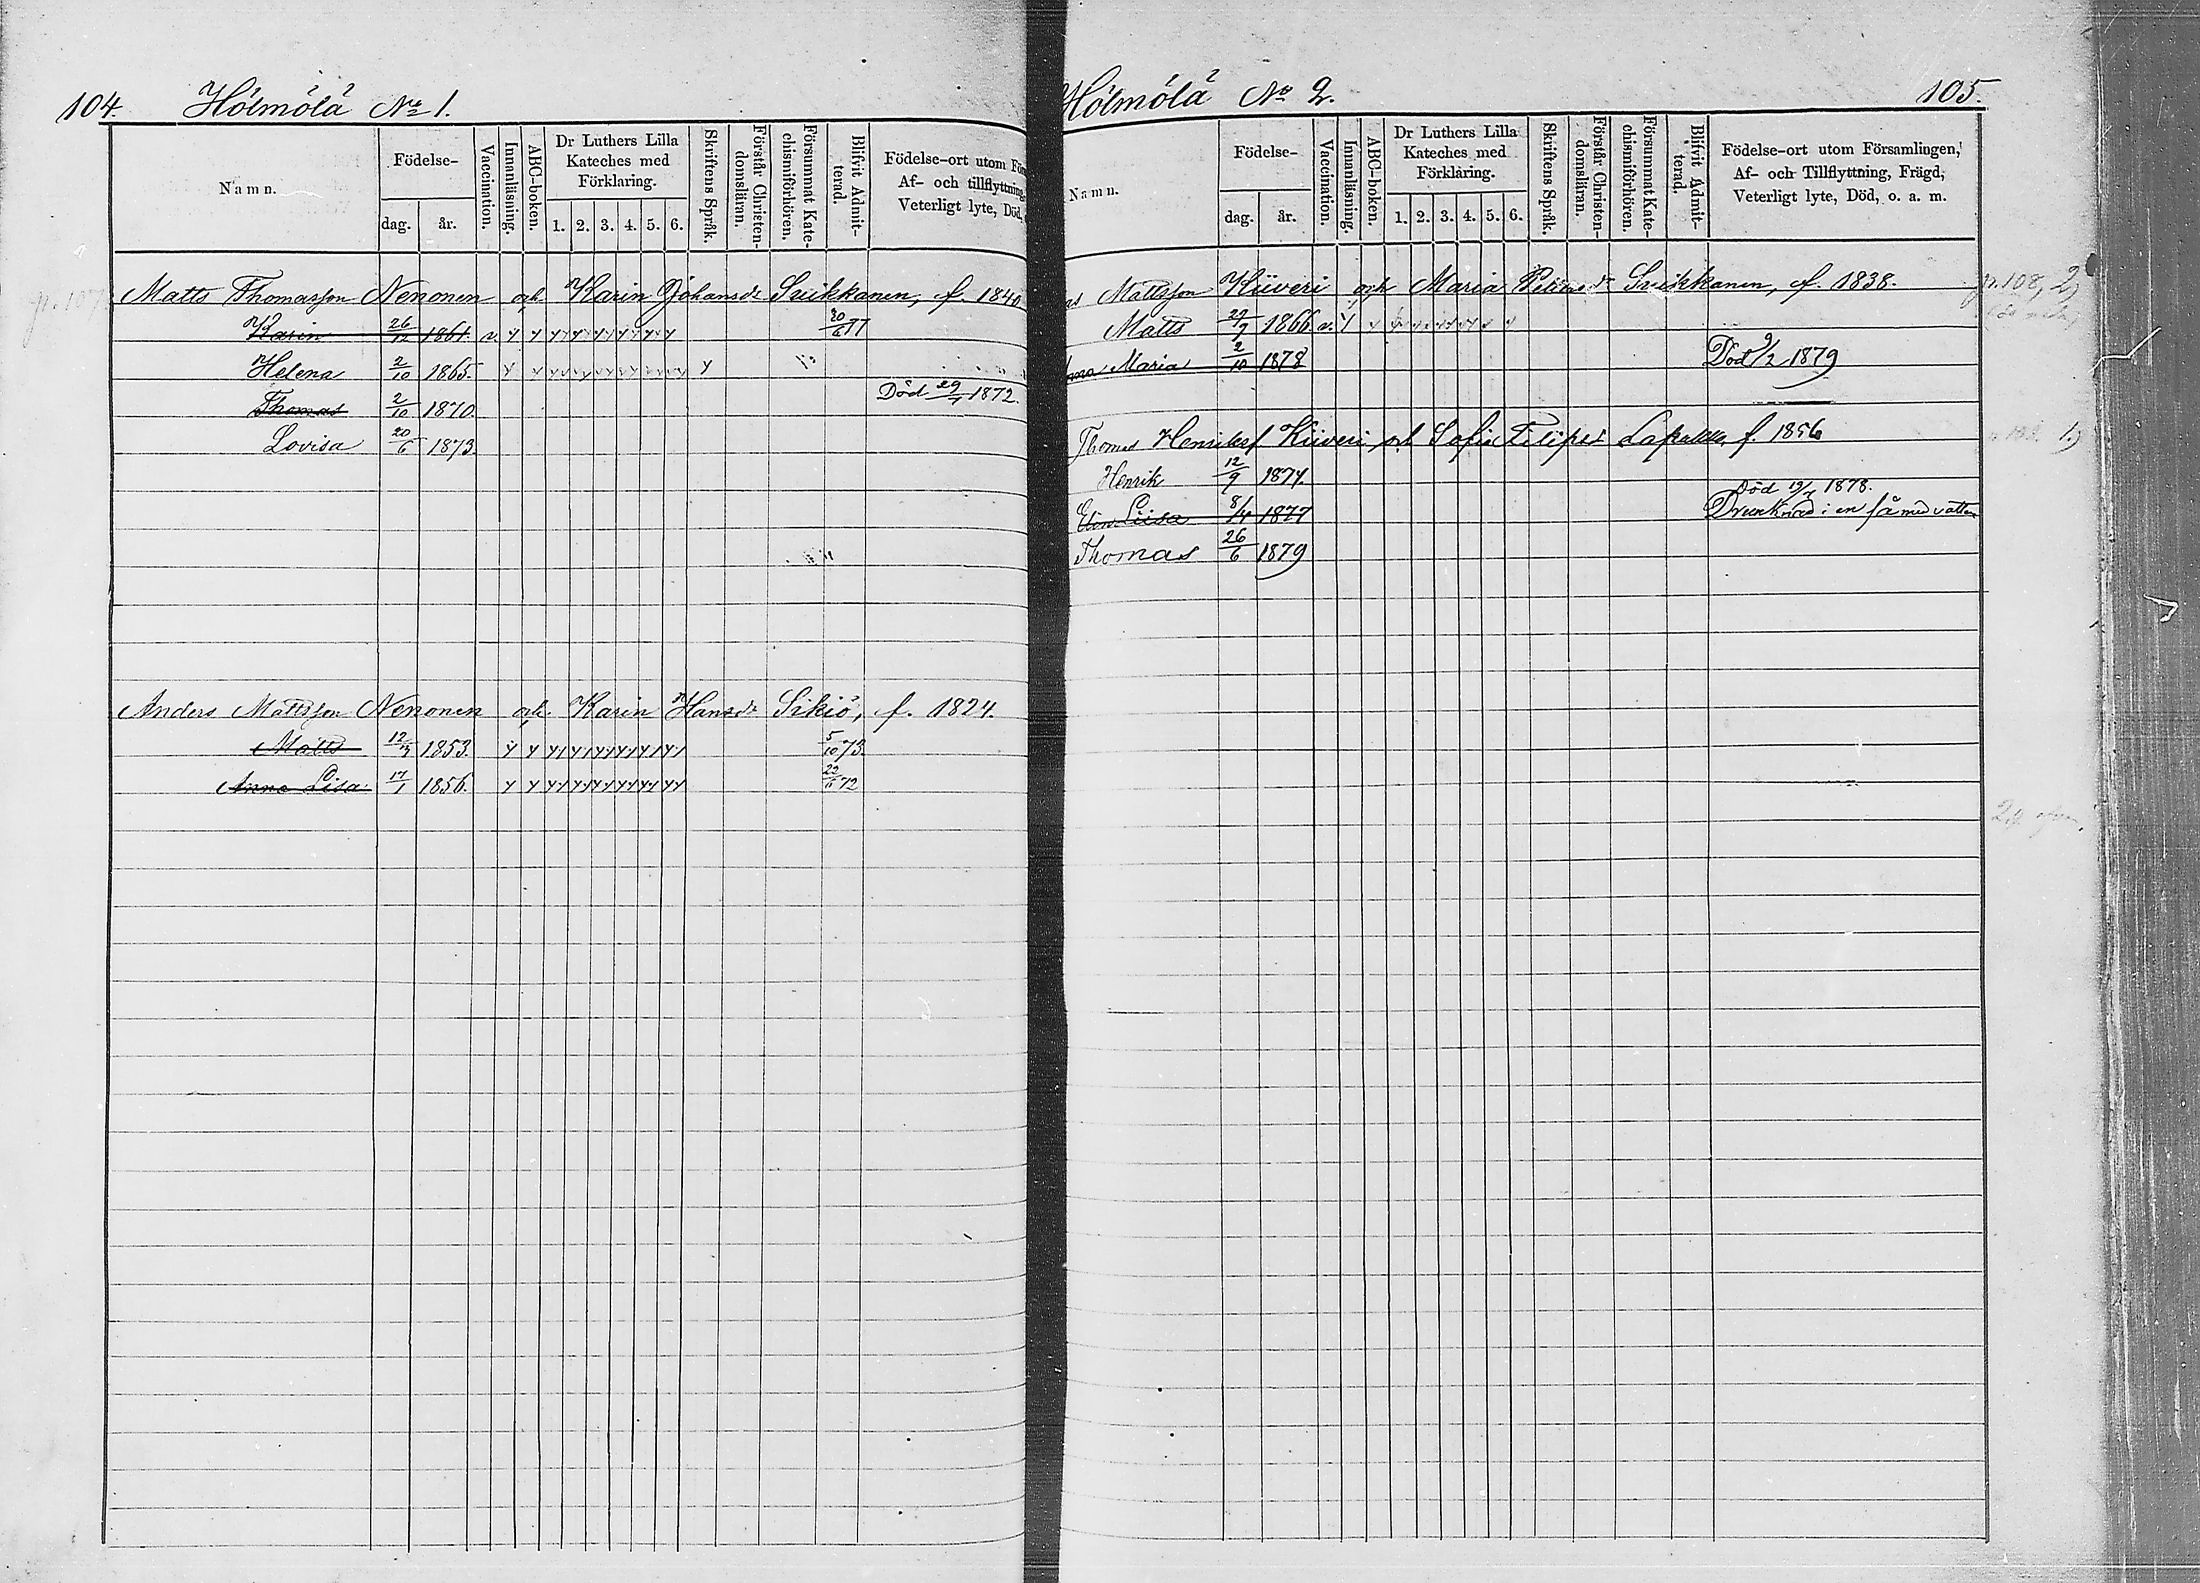 104. Hölmölä No 1.
Namn.
Födelse-
dag. år.
Vaccination.
Innanläsning.
ABC-boken.
Dr Luthers Lilla
Kateches med
Förklaring.
1. 2. 3. 4. 5. 6.
Skriftens Språk.
Förstår Christen-
domsläran.
Försummat Kate-
chismiförhören.
Blifvit Admit-
terad.
Födelse-ort utom För
Af- och tillflyttning,
Veterligt lyte, Död,
Matts Thomasson Nenonen och Karin Johansdr Suikkanen, f. 1840
Karin 26/12 1861. v. y y y y y y y y y y y y y y 20/6 77
Helena 2/10 1865. y y y y y y y y y y y y y y y
Thomas 2/10 1870. Död 29/7 1872.
Lovisa 20/6 1873.
Anders Mattsson Nenonen och Karin Hansdr Sikiö, f. 1824.
Matts 12/3 1853. y y y y y y y y y y y y y y 5/10 73
Anna Lisa 17/1 1856. y y y y y y y y y y y y y y 22/6 72
Hölmölä No 2. 105.
Namn.
Födelse-
dag. år.
Vaccination.
Innanläsning.
ABC-boken.
Dr Luthers Lilla
Kateches med
Förklaring.
1. 2. 3. 4. 5. 6.
Skriftens Språk.
Förstår Christen-
domsläran.
Försummat Kate-
chismiförhören.
Blifvit Admit-
terad.
Födelse-ort utom Församlingen,
Af- och Tillflyttning, Frägd,
Veterligt lyte, Död, o. a. m.
Mattsson Kiiveri och Maria Suikkanen, f. 1838. p. 108, 2)
Matts 27/9 1866. v. y
Maria 2/10 1878 Död 9/2 1879
Thomas Henriksf Kiiveri och Sofia Filipsd f. 1856 1.)
Henrik 12/9 1874.
Elin Liisa 8/4 1877 Död 19/7 1878.
Drunknad i en så med vatten
Thomas 26/6 1879